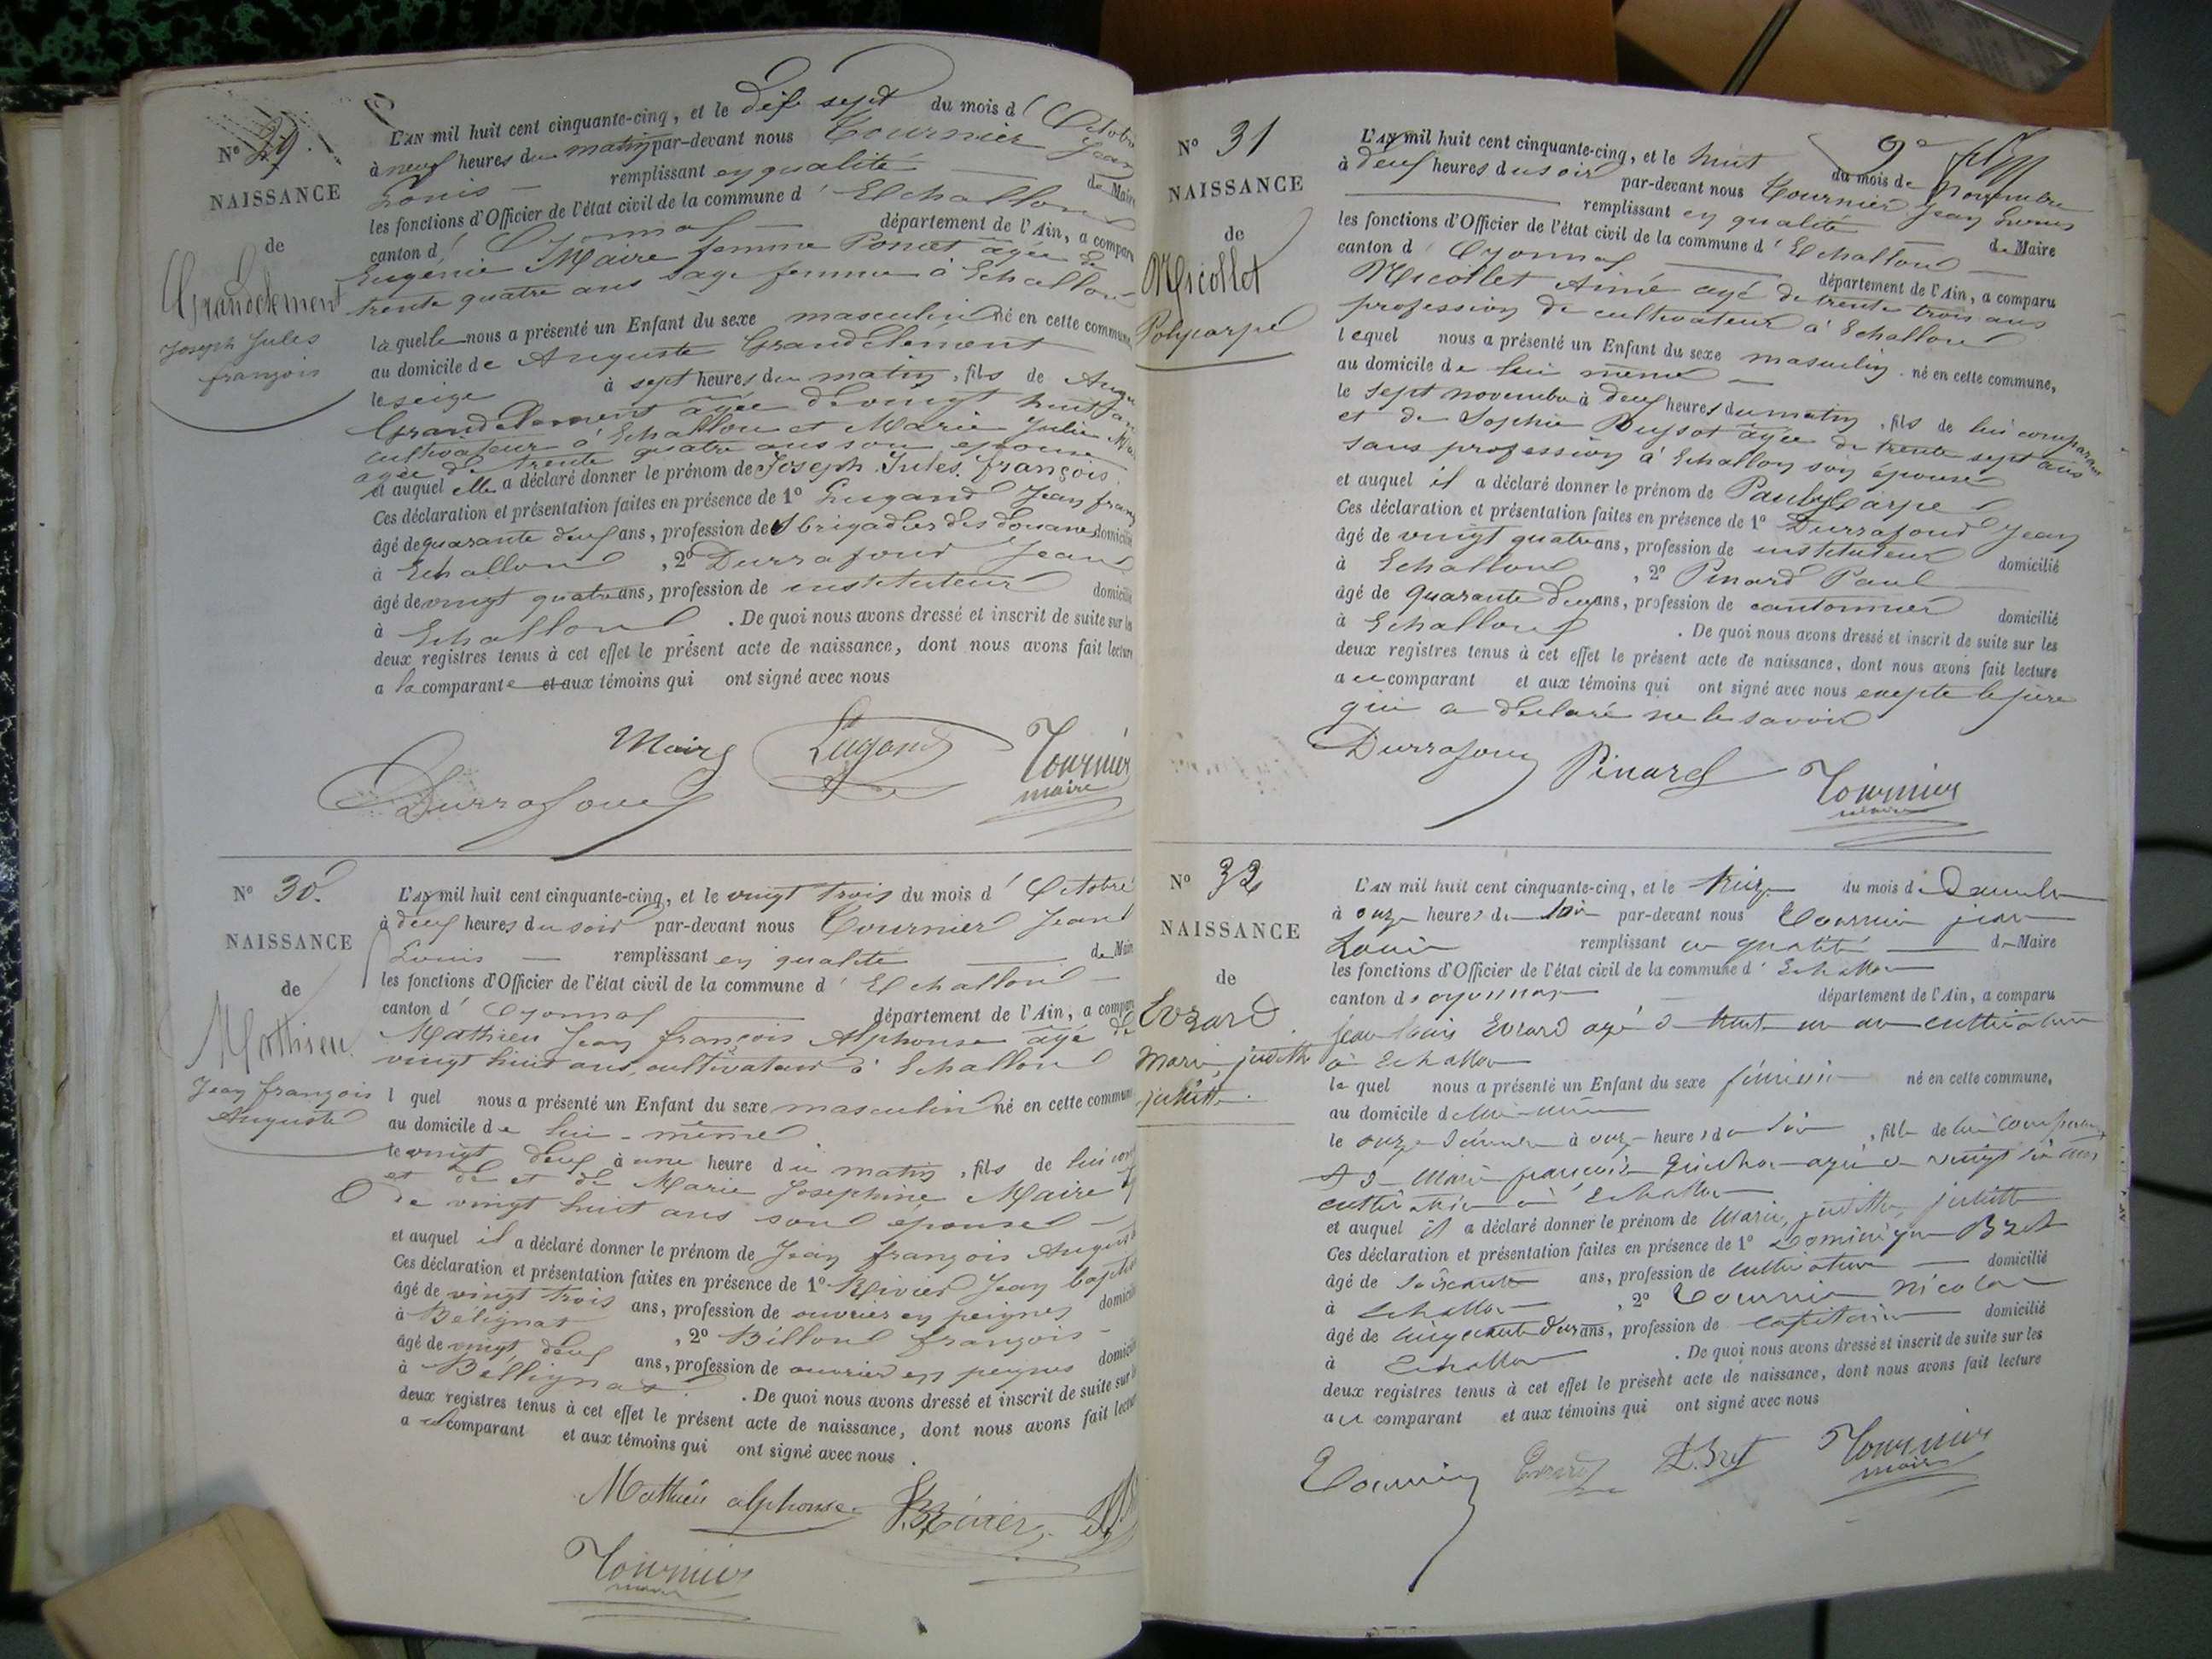 N° 29.
NAISSANCE
de
Grandclement
Joseph Jules
françois
L'AN mil huit cent cinquante-cinq, et le dix sept du mois d' Octobre
à neuf heures du matin par-devant nous Tournier Jean
Louis — remplissant en qualité — de Maire
les fonctions d'Officier de l'état civil de la commune d' Echallon
canton d' Oyonnax — département de l'Ain, a comparu
Eugénie Maire femme Poncet agée de
trente quatre ans sage femme à Echallon
laquelle nous a présenté un Enfant du sexe masculin né en cette commune,
au domicile de Auguste Grandclément
le seize à sept heures du matin, fils de
Grandclement âgée de vingt huit ans
cultivateur à Echallon et Marie Julie
agée de trente quatre ans son épouse
et auquel elle a déclaré donner le prénom de Joseph Jules françois
Ces déclaration et présentation faites en présence de 1° Lugand Jean
âgé de quarante deux ans, profession de brigadier des douanes domicilié
à Echallon, 2° Durrafour Jean
âgé de vingt quatre ans, profession de instituteur domicilié
à Echallon. De quoi nous avons dressé et inscrit de suite sur les
deux registres tenus à cet effet le présent acte de naissance, dont nous avons fait lecture
a la comparante et aux témoins qui ont signé avec nous
Maire Lugand Tournier
maire
Durrafour
N° 30.
NAISSANCE
de
Mathieu
Jean françois
Auguste
L'AN mil huit cent cinquante-cinq, et le vingt trois du mois d' Octobre
à deux heures du soir par-devant nous Tournier Jean
Louis — remplissant en qualité — de Maire
les fonctions d'Officier de l'état civil de la commune d' Echallon
canton d' Oyonnax — département de l'Ain, a comparu
Mathieu Jean françois Alphonse âgé de
vingt huit ans, cultivateur à Echallon
l quel nous a présenté un Enfant du sexe masculin né en cette commune
au domicile de lui-même
le vingt deux à une heure du matin, fils de lui
et de et de Marie Josephine Maire
de vingt huit ans son épouse
et auquel il a déclaré donner le prénom de Jean françois Auguste
Ces déclaration et présentation faites en présence de 1° Rivier Jean baptiste
âgé de vingt trois ans, profession de ouvrier en peignes domicilié
à Bélignat, 2° Billon françois
âgé de vingt deux ans, profession de ouvrier en peignes domicilié
à Bellignat. De quoi nous avons dressé et inscrit de suite sur
deux registres tenus à cet effet le présent acte de naissance, dont nous avons fait lecture
a u comparant et aux témoins qui ont signé avec nous.
Mathieu alphonse Rivier
Tournier
maire
N° 31
NAISSANCE
de
Nicollet
Polycarpe
L'AN mil huit cent cinquante-cinq, et le huit du mois de novembre
à deux heures du soir par-devant nous Tournier Jean Louis
— remplissant en qualité — de Maire
les fonctions d'Officier de l'état civil de la commune d' Echallon
canton d' Oyonnax — département de l'Ain, a comparu
Nicollet Aimé agé de trente trois ans
profession de cultivateur à Echallon
lequel nous a présenté un Enfant du sexe masculin né en cette commune,
au domicile de lui même —
le sept novembre à deux heures du matin, fils de lui comparant
et de Sophie agée de trente sept ans
sans profession à Echallon son épouse
et auquel il a déclaré donner le prénom de Paulycarpe
Ces déclaration et présentation faites en présence de 1° Durrafour Jean
âgé de vingt quatre ans, profession de instituteur domicilié
à Echallon, 2° Pinard Paul
âgé de quarante deux ans, profession de cantonnier domicilié
à Echallon. De quoi nous avons dressé et inscrit de suite sur les
deux registres tenus à cet effet le présent acte de naissance, dont nous avons fait lecture
au comparant et aux témoins qui ont signé avec nous excepté le père
qui a déclaré ne le savoir
Durrafour Pinard Tournier
maire
N° 32
NAISSANCE
de
Evrard
Marie, judith
juliette
L'AN mil huit cent cinquante-cinq, et le treize du mois de Décembre
à onze heures du soir par-devant nous Tournier jean
Louis remplissant en qualité — de Maire
les fonctions d'Officier de l'état civil de la commune d' Echallon
canton d'oyonnax — département de l'Ain, a comparu
jean louis Evrard agé de trente un an cultivateur
à Echallon
le quel nous a présenté un Enfant du sexe féminin né en cette commune,
au domicile de lui-même
le onze décembre à onze heures du soir, fille de lui comparant
et de Marie françoise agée de vingt six ans
cultivatrice à Echallon
et auquel il a déclaré donner le prénom de Marie, judith, juliette
Ces déclaration et présentation faites en présence de 1° Dominique Bret
âgé de soixante ans, profession de cultivateur — domicilié
à Echallon, 2° Tournier Nicolas
âgé de cinquante deux ans, profession de capitaine domicilié
à Echallon. De quoi nous avons dressé et inscrit de suite sur les
deux registres tenus à cet effet le présent acte de naissance, dont nous avons fait lecture
au comparant et aux témoins qui ont signé avec nous
Tournier Evrard D. Bret Tournier
maire